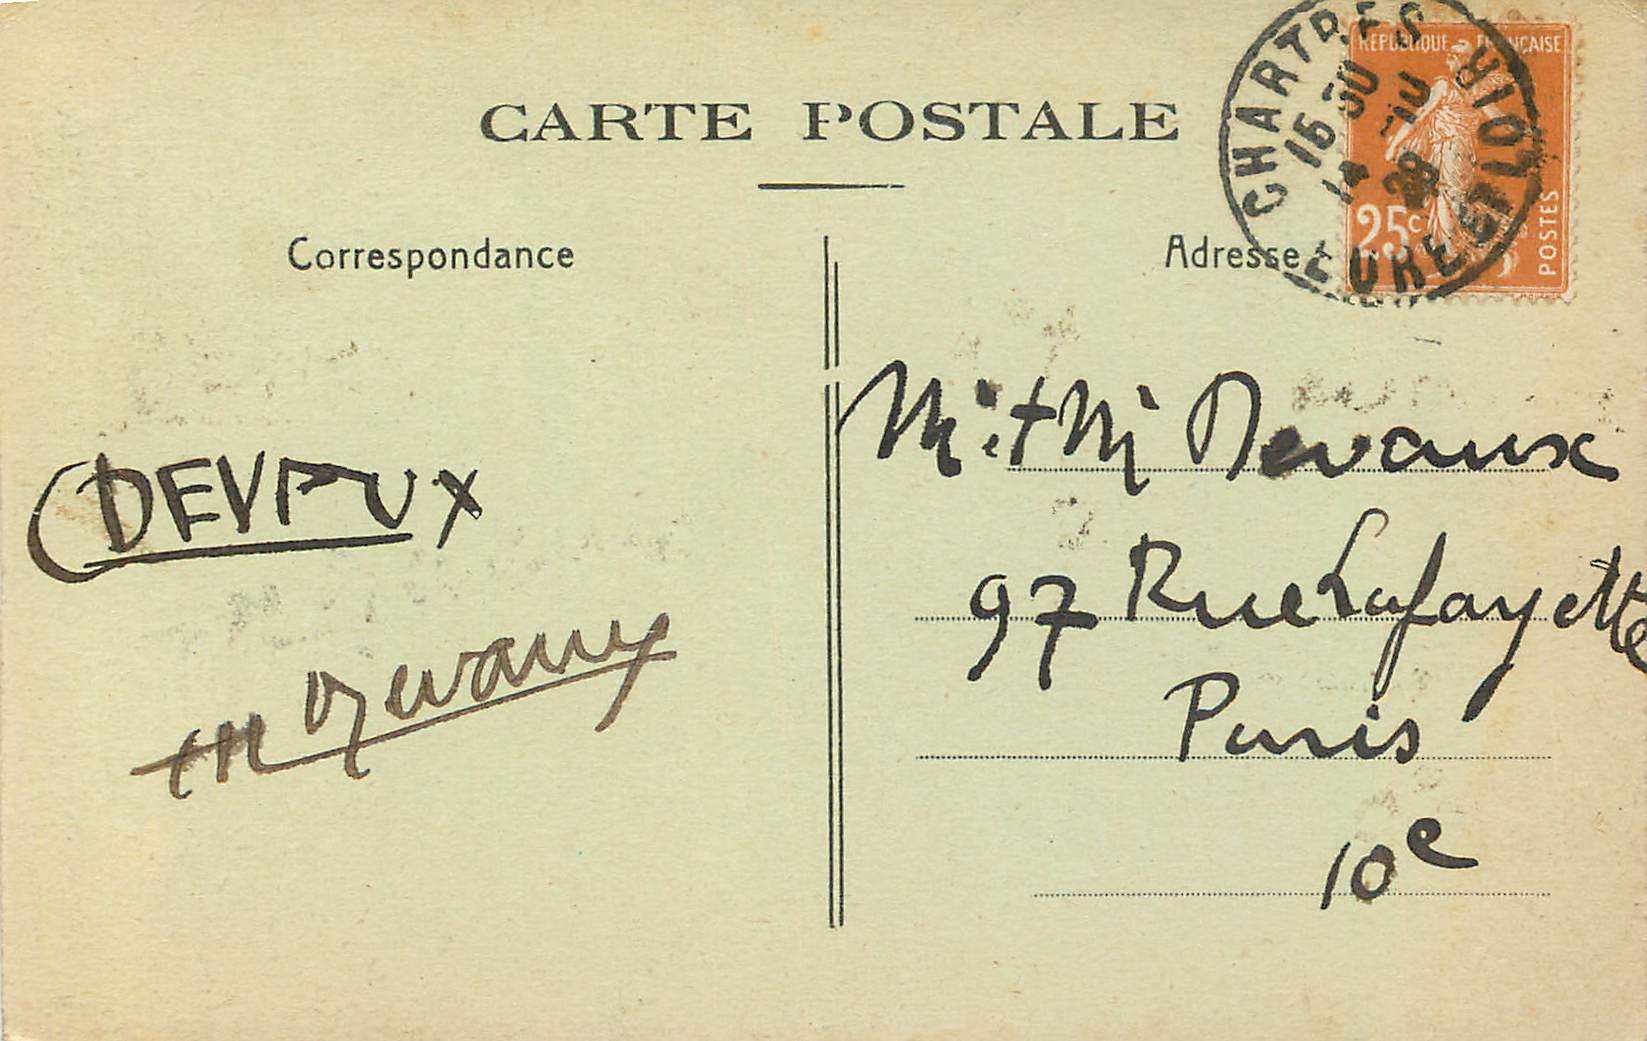 CARTE POSTALE
Correspondance
Adresse
CHARTRES
EURE ET LOIR
15 30
28
REPUBLIQUE FRANÇAISE
25c
POSTES
DEVAUX
M Devaux
M. et M Devaux
97 Rue Lafayette
Paris
10e